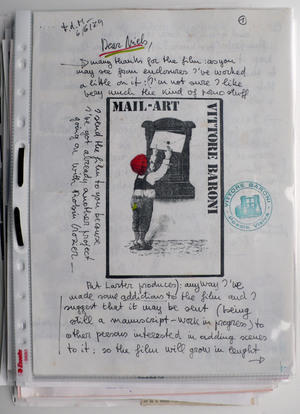 1
6/6/79
Dear Niels,
Many thanks for the film: as you
may see from enclosures I've worked
a little on it: I'm not sure I like
very much the kind of porno stuff
MAIL-ART
VITTORE BARONI
VITTORE BARONI
I send the film to you because
I've got already another project
going on with Robin Crozier —
But Laster produces): anyway I've
made some addictions to the film and I
suggest that it may be sent (being
still a manuscript-work in progress) to
other persons interested in adding scenes
to it: so the film will grow in lenght